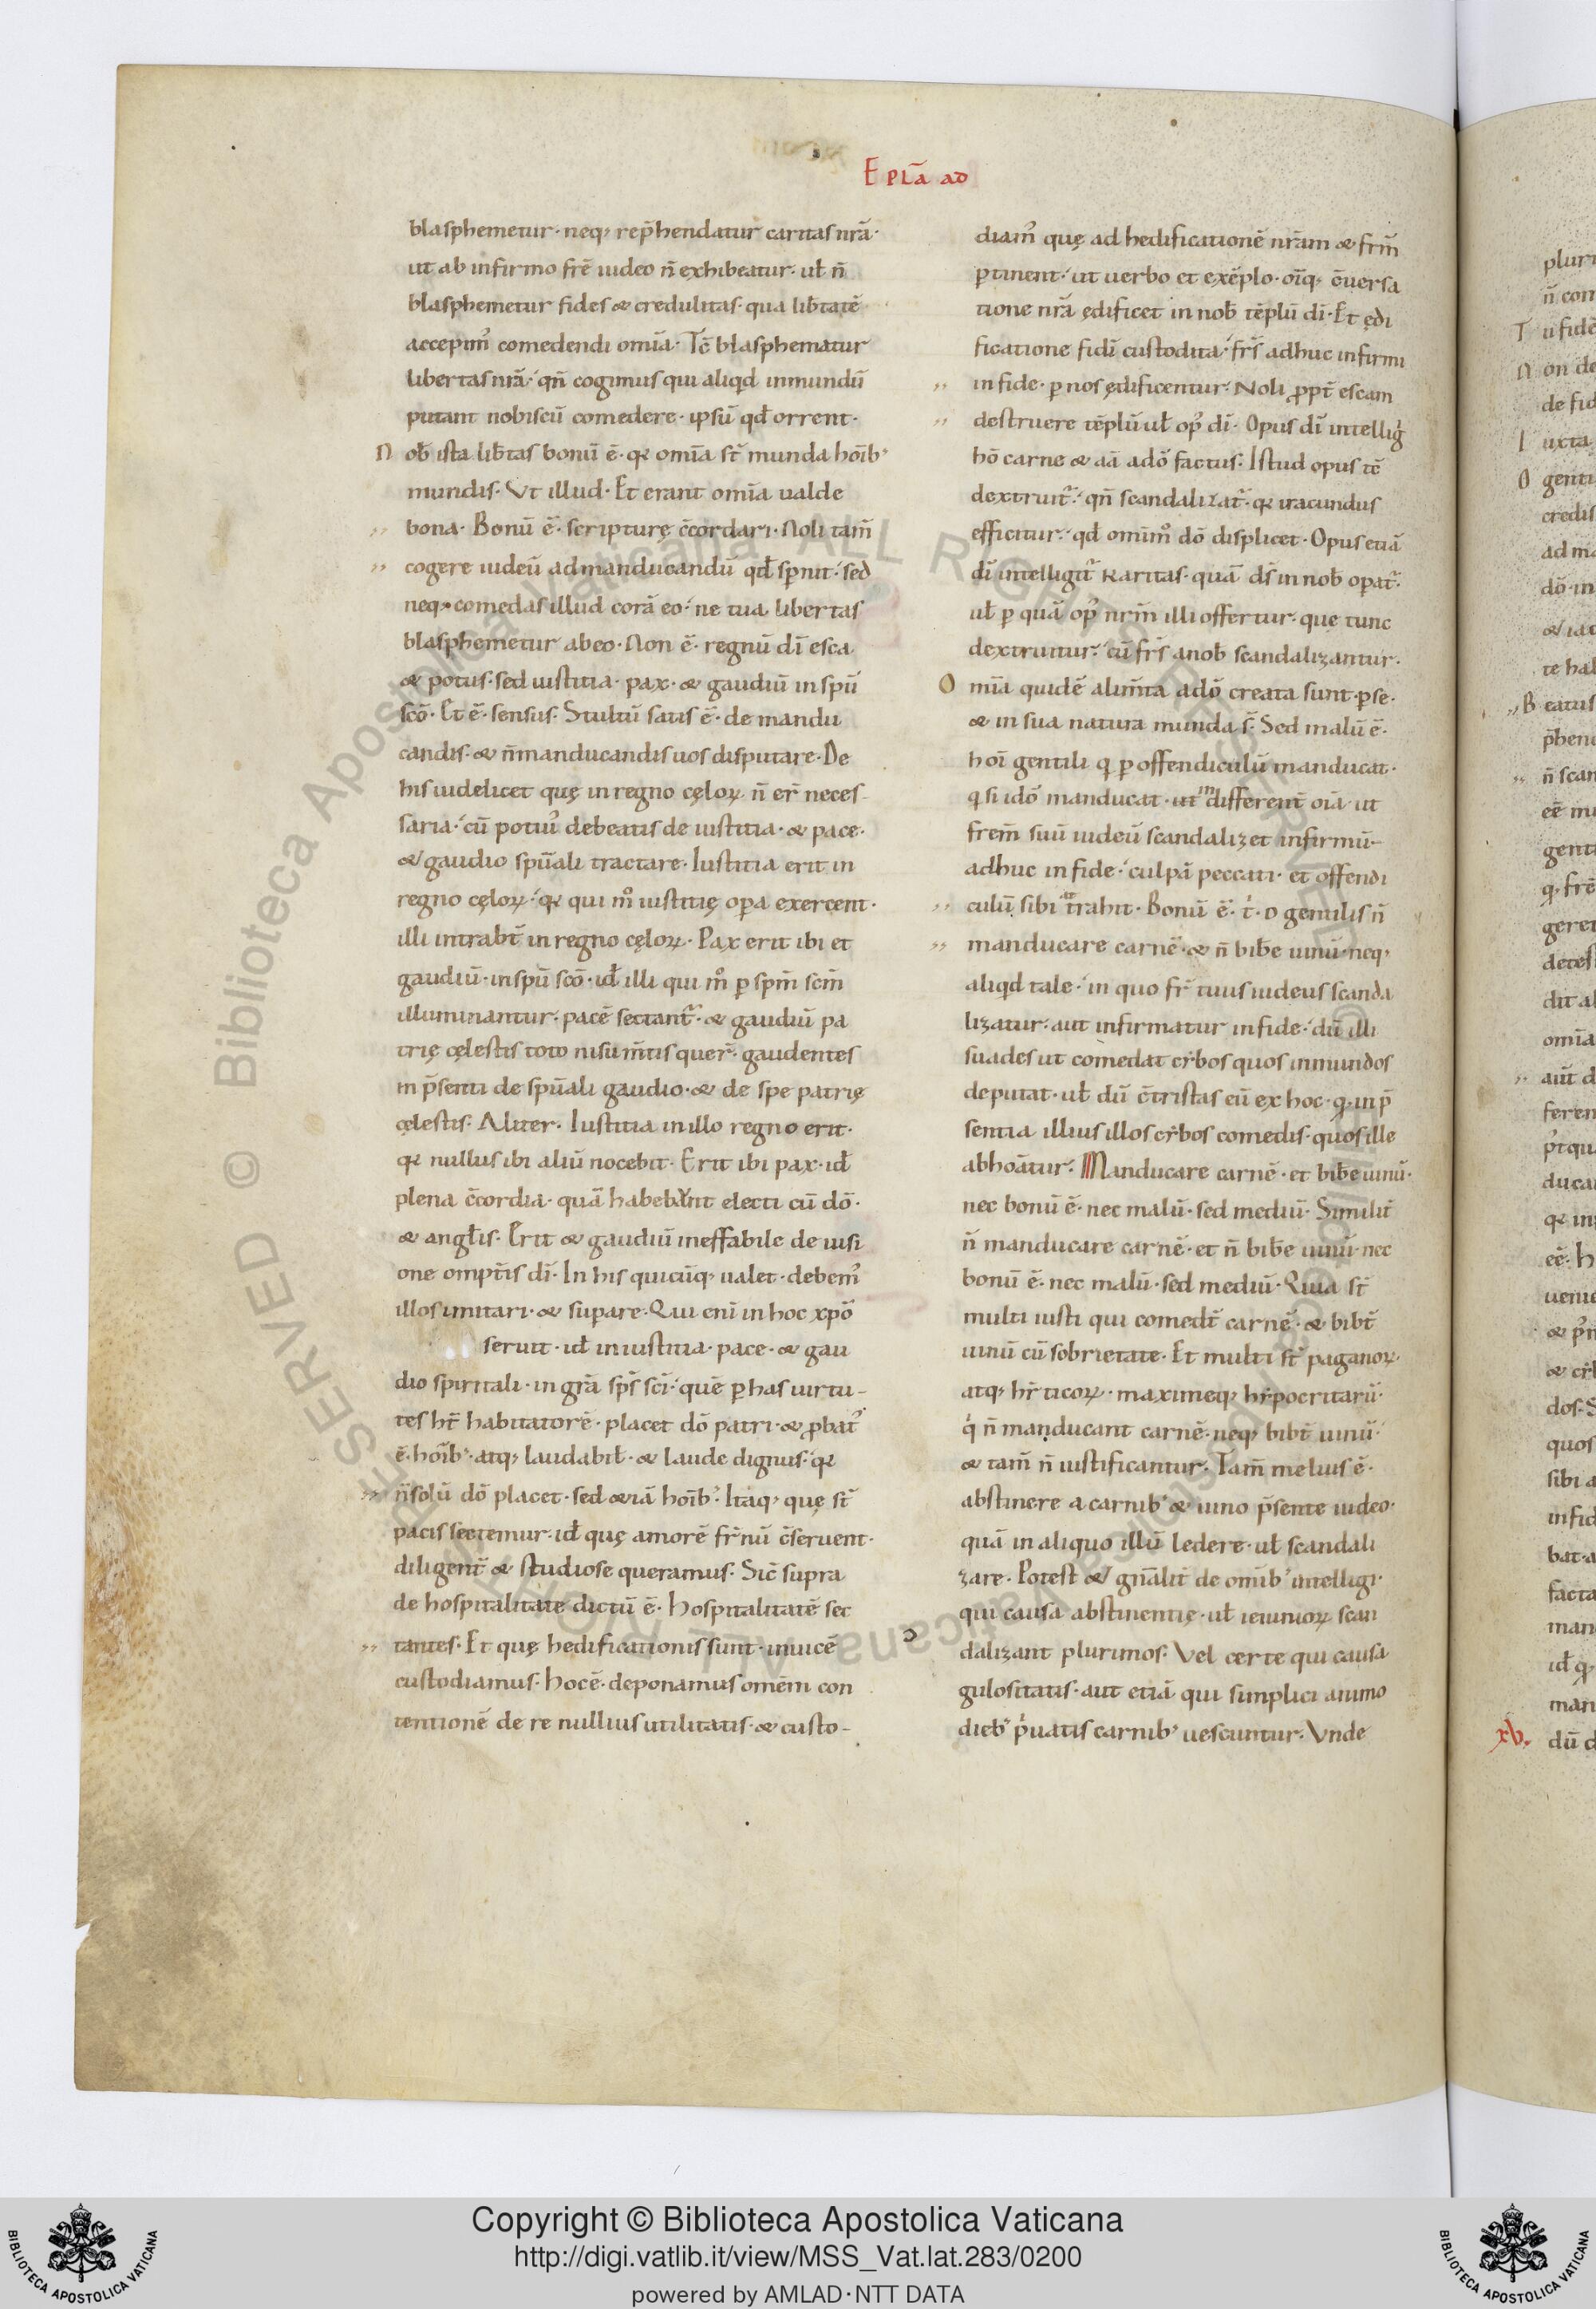 EPLĀ AD
blasphemetur· neq; rep̄hendatur caritas nr̄a·
ut ab infirmo frē iudeo n̄ exhibeatur· ul̄ n̄
blasphemetur fides & credulitas· qua lib̄tatē
accepim᾽ comedendi omīa· Tc̄ blasphematur
libertas nr̄a· qn̄ cogimus qui aliqd inmundū
putant nobiscū comedere· ipsū qd̄ orrent·
Nob̄ ista lib̄tas bonū ē· qr omīa st̄ munda hoīb;
mundis· Ut illud· Et erant omīa ualde
bona· Bonū ē· scripturę c̄cordari· Noli tam̄
cogere iudeū ad manducandū qd̄ sp̄nit· sed
neq; comedas illud corā eo· ne tua libertas
blasphemetur ab eo· Non ē· regnū dī esca
& potus· sed iustitia· pax· & gaudiū in spū
scō· Et ē· sensus· Stultū satis ē· de mandu
candis· & n̄ manducandis uos disputare· De
his uidelicet quę in regno cęloꝝ n̄ er̄ neces-
saria· cū potiu᾽ debeatis de iustitia· & pace·
& gaudio spūali tractare· Iustitia erit in
regno cęloꝝ· qr qui m̊ iustitię oꝑa exercent·
illi intrabt̄ in regno cęloꝝ· Pax erit ibi et
gaudiū· in spū scō· id̄ illi qui m̊ ꝑ spm̄ scm̄
illuminantur· pacē sectant᾽· & gaudiū pa
trię cęlestis toto nisu m̄tis quer̄· gaudentes
in p̄senti de spūali gaudio· & de spe patrię
cęlestis· Aliter· Iustitia in illo regno erit·
qr nullus ibi aliū nocebit· Erit ibi pax· id̄
plena c̄cordia· quā habebunt electi cū dō·
& angl̄is· Erit & gaudiū ineffabile de uisi
one omp̄tis dī· In his quicūq; ualet· debem᾽
illos imitari· & suꝑare· Qui enī in hoc xpō
seruit· id̄ in iustitia· pace· & gau
dio spiritali· in gr̄a sp̄s scī· quē ꝑ has uirtu-
tes hr̄ habitatorē· placet dō patri· & ꝓbat᾽
ē· hoīb;· atq; laudabil̄· & laude dignus· qr
n̄ solū dō placet· sed &iā hoīb;· Itaq; quę st̄
pacis sectemur· id̄ quę amorē fr̄nū c̄seruent·
diligent̄ & studiose queramus· Sic̄ supra
de hospitalitate dictū ē· Hospitalitatē sec
tantes· Et quę hedificationis sunt· inuicē
custodiamus· Hoc ē· deponamus omēm con
tentionē de re nullius utilitatis· & custo-
diam᾽ quę ad hedificationē nr̄am & frm̄
ꝑtinent· ut uerbo et exēplo· oīq; c̄uersa
tione nr̄a ędificet in nob̄ tēplū dī· Et ędi
ficatione fidī custodita· frs̄ adhuc infirmi
in fide· ꝑ nos ędificentur· Noli ꝓpt̄ escam
destruere tēplū ul̄ op᾽ dī· Opus dī intelliḡ
hō carne & aā a dō factus· Istud opus tc̄
dextruit᾽· qn̄ scandalizat᾽· qr iracundus
efficitur· qd̄ omīm᾽ dō displicet· Opus etiā
dī intelligit᾽ karitas· quā ds̄ in nob̄ oꝑat᾽·
ul̄ ꝑ quā op᾽ nrm̄ illi offertur· quę tunc
dextruitur· cū frs̄ a nob̄ scandalizantur·
Omīa quidē alim̄ta a dō creata sunt· ꝑ se·
& in sua natura munda s̄· Sed malū ē·
hoī gentili q ꝑ offendiculū manducat·
q si idō manducat· ut᾽ differen̄t oīa ut
frem̄ suū iudeū scandalizet infirmū-
adhuc in fide· culpā peccati· et offendi
culū sibi trahit· Bonū ē· t̄· o gentilis n̄
manducare carnē· & n̄ bib̄e uinū· neq;
aliqd tale· in quo fr̄ tuus iudeus scanda
lizatur· aut infirmatur in fide· dū illi
suades ut comedat cy̌bos quos inmundos
deputat· ul̄ dū c̄tristas eū ex hoc· q in p̄
sentia illius illos cy̌bos comedis· quos ille
abhoātur· Manducare carnē· et bib̄e uinū·
nec bonū ē· nec malū· sed mediū· Similit̄
n̄ manducare carnē· et n̄ bib̄e uinū· nec
bonū ē· nec malū· sed mediū· Quia st̄
multi iusti qui comedt̄ carnē· & bibt̄
uinū cū sobrietate· Et multi st̄ paganoꝝ·
atq; hr̄ticoꝝ· maximeq; hy̌pocritarū·
q̇ n̄ manducant carnē· neq; bibt̄ uinū·
& tam̄ n̄ iustificantur· Tam̄ melius ē·
abstinere a carnib; & uino p̄sente iudeo·
quā in aliquo illū ledere· ul̄ scandali
zare· Potest & gn̄alit̄ de omīb; intelligi·
qui causa abstinentię· ul̄ ieiunioꝝ scan
dalizant plurimos· Vel certe qui causa
gulositatis· aut etiā qui simplici animo
dieb; ṗuatis carnib; uescuntur· Vnde
xv.
Copyright © Biblioteca Apostolica Vaticana
http://digi.vatlib.it/view/MSS_Vat.lat.283/0200
powered by AMLAD·NTT DATA